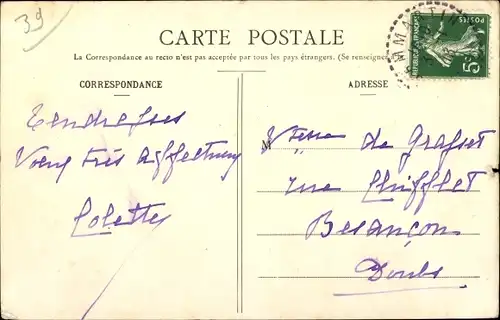 39
CARTE POSTALE
La Correspondance au recto n'est pas acceptée par tous les pays étrangers. (Se renseigner
CORRESPONDANCE
ADRESSE
Tendresses
Vœux très affectueux
Colette
M
Vtesse de Grasset
rue Chifflet
Besançon
Doubs
POSTES
5c
REPUBLIQUE FRANÇAISE